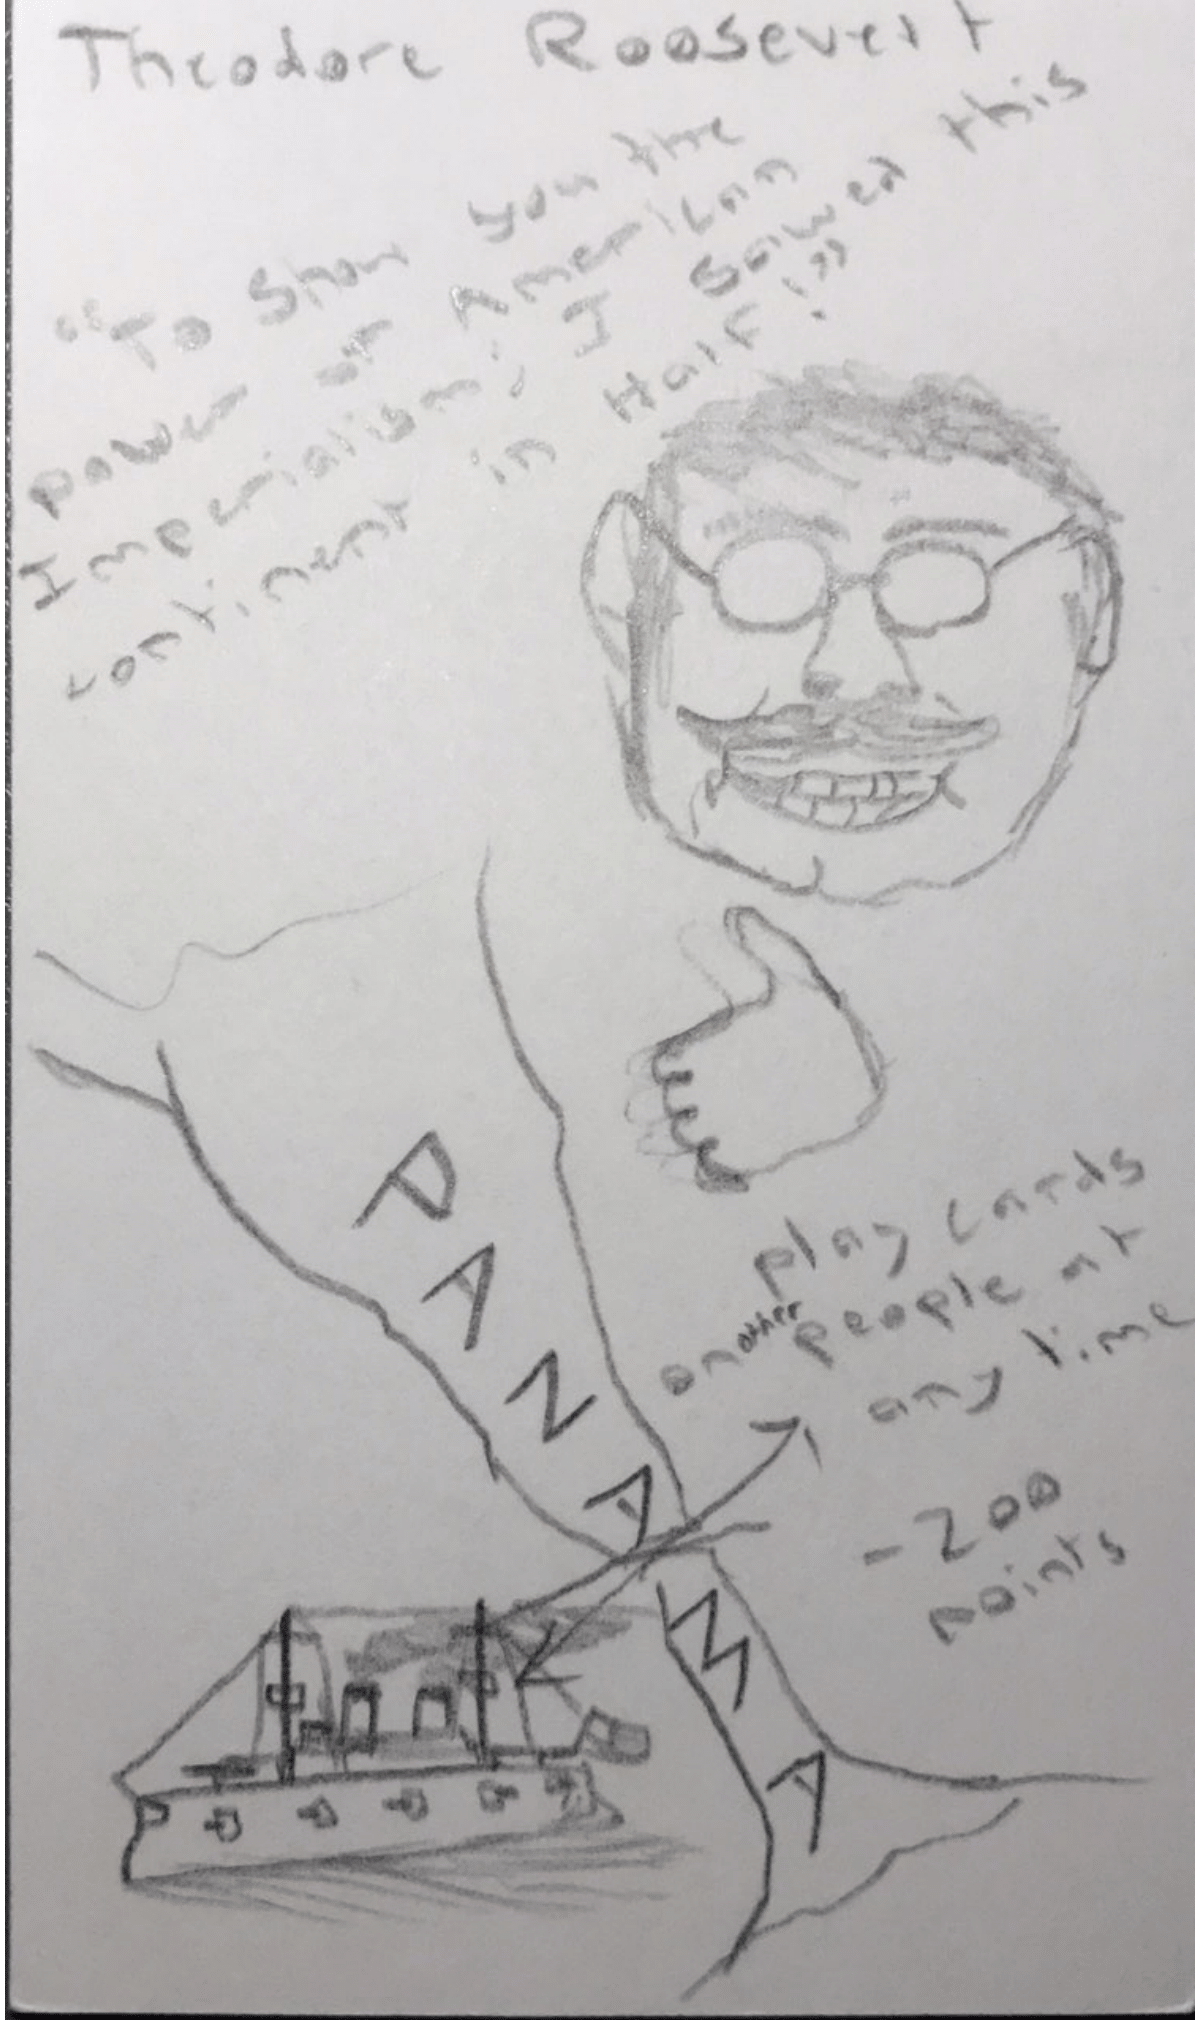 Theodore Roosevelt
"To Show you the
power of American
Imperialism, I sawed this
continent in Half!"
PANAMA
play cards
on other people at
any time
-200
points